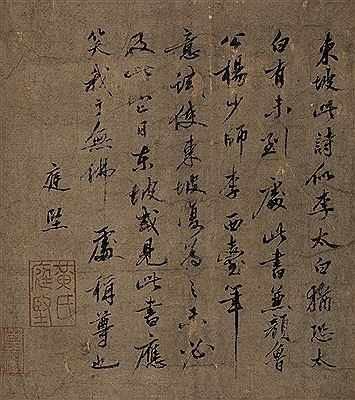 東坡此詩似李太白猶恐太
白有未到處此書兼顏魯
公楊少師李西臺筆
意試使東坡復為之未必
及此它日東坡或見此書應
笑我於無佛處稱尊也
庭堅
黃氏
庭堅